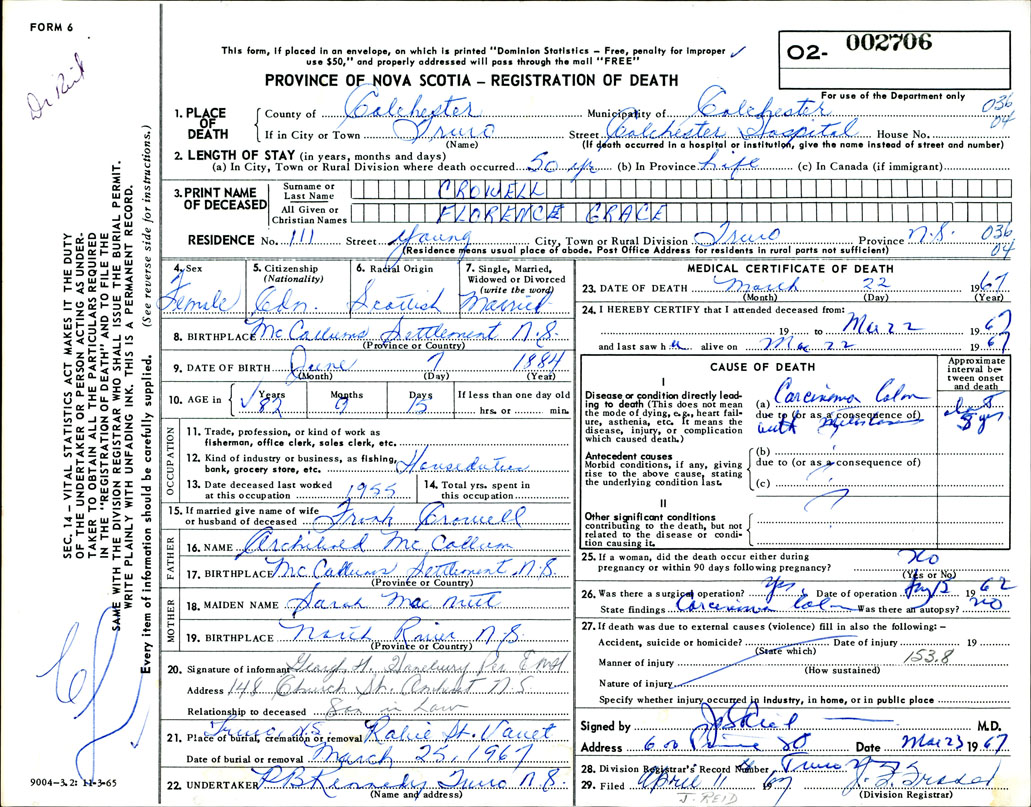 FORM 6
Dr Reid
This form, if placed in an envelope, on which is printed "Dominion Statistics – Free, penalty for improper
use $50," and properly addressed will pass through the mail "FREE"
02- 002706
PROVINCE OF NOVA SCOTIA – REGISTRATION OF DEATH
For use of the Department only
1. PLACE OF DEATH County of Colchester Municipality of Colchester 036
If in City or Town Truro Street Colchester Hospital House No. 04
(Name) (If death occurred in a hospital or institution, give the name instead of street and number)
2. LENGTH OF STAY (in years, months and days)
(a) In City, Town or Rural Division where death occurred 50 yr (b) In Province Life (c) In Canada (if immigrant)
3. PRINT NAME OF DECEASED Surname or Last Name CROWELL
All Given or Christian Names FLORENCE GRACE
RESIDENCE No. 111 Street Young City, Town or Rural Division Truro Province N.S. 036
(Residence means usual place of abode. Post Office Address for residents in rural parts not sufficient) 04
SEC. 14 – VITAL STATISTICS ACT MAKES IT THE DUTY
OF THE UNDERTAKER OR PERSON ACTING AS UNDER-
TAKER TO OBTAIN ALL THE PARTICULARS REQUIRED
IN THE "REGISTRATION OF DEATH" AND TO FILE THE
SAME WITH THE DIVISION REGISTRAR WHO SHALL ISSUE THE BURIAL PERMIT.
WRITE PLAINLY WITH UNFADING INK. THIS IS A PERMANENT RECORD.
Every item of information should be carefully supplied. (See reverse side for instructions.)
4. Sex Female
5. Citizenship (Nationality) Cdn.
6. Racial Origin Scottish
7. Single, Married, Widowed or Divorced (write the word) Married
8. BIRTHPLACE McCallums Settlement N.S.
(Province or Country)
9. DATE OF BIRTH June 7 1884
(Month) (Day) (Year)
10. AGE in Years 82 Months 9 Days 15 If less than one day old
hrs. or min.
OCCUPATION
11. Trade, profession, or kind of work as
fisherman, office clerk, sales clerk, etc.
12. Kind of industry or business, as fishing,
bank, grocery store, etc. Houseduties
13. Date deceased last worked
at this occupation 1955
14. Total yrs. spent in
this occupation
15. If married give name of wife
or husband of deceased Frank Crowell
FATHER
16. NAME Archibald McCallum
17. BIRTHPLACE McCallums Settlement N.S.
(Province or Country)
MOTHER
18. MAIDEN NAME Sarah Mac Nutt
19. BIRTHPLACE North River N S.
(Province or Country)
20. Signature of informant H.
Address 148 Church St. Amherst N S
Relationship to deceased Son in Law
21. Place of burial, cremation or removal Truro NS Robie St.
Date of burial or removal March 25, 1967
22. UNDERTAKER P B Kennedy Truro N.S.
(Name and address)
9004-3.2: 11-3-65
MEDICAL CERTIFICATE OF DEATH
23. DATE OF DEATH March 22 1967
(Month) (Day) (Year)
24. I HEREBY CERTIFY that I attended deceased from:
19 to Mar 22 1967
and last saw her alive on Mar 22 1967
CAUSE OF DEATH
Approximate interval between onset and death
I
Disease or condition directly lead-
ing to death (This does not mean
the mode of dying, e.g., heart fail-
ure, asthenia, etc. It means the
disease, injury, or complication
which caused death.)
(a) Carcinoma Colon
due to (or as a consequence of)
with
5 yrs
Antecedent causes
Morbid conditions, if any, giving
rise to the above cause, stating
the underlying condition last.
(b)
due to (or as a consequence of)
(c)
II
Other significant conditions
contributing to the death, but not
related to the disease or condi-
tion causing it.
25. If a woman, did the death occur either during
pregnancy or within 90 days following pregnancy? No
(Yes or No)
26. Was there a surgical operation? Yes Date of operation 1962
State findings Carcinoma Colon Was there an autopsy? no
27. If death was due to external causes (violence) fill in also the following: –
Accident, suicide or homicide? Date of injury 19
(State which) 153.8
Manner of injury
(How sustained)
Nature of injury
Specify whether injury occurred in industry, in home, or in public place
Signed by J S Reid M.D.
Address Date Mar 23 1967
28. Division Registrar's Record Number Truro
29. Filed April 11 1967
J. REID (Division Registrar)